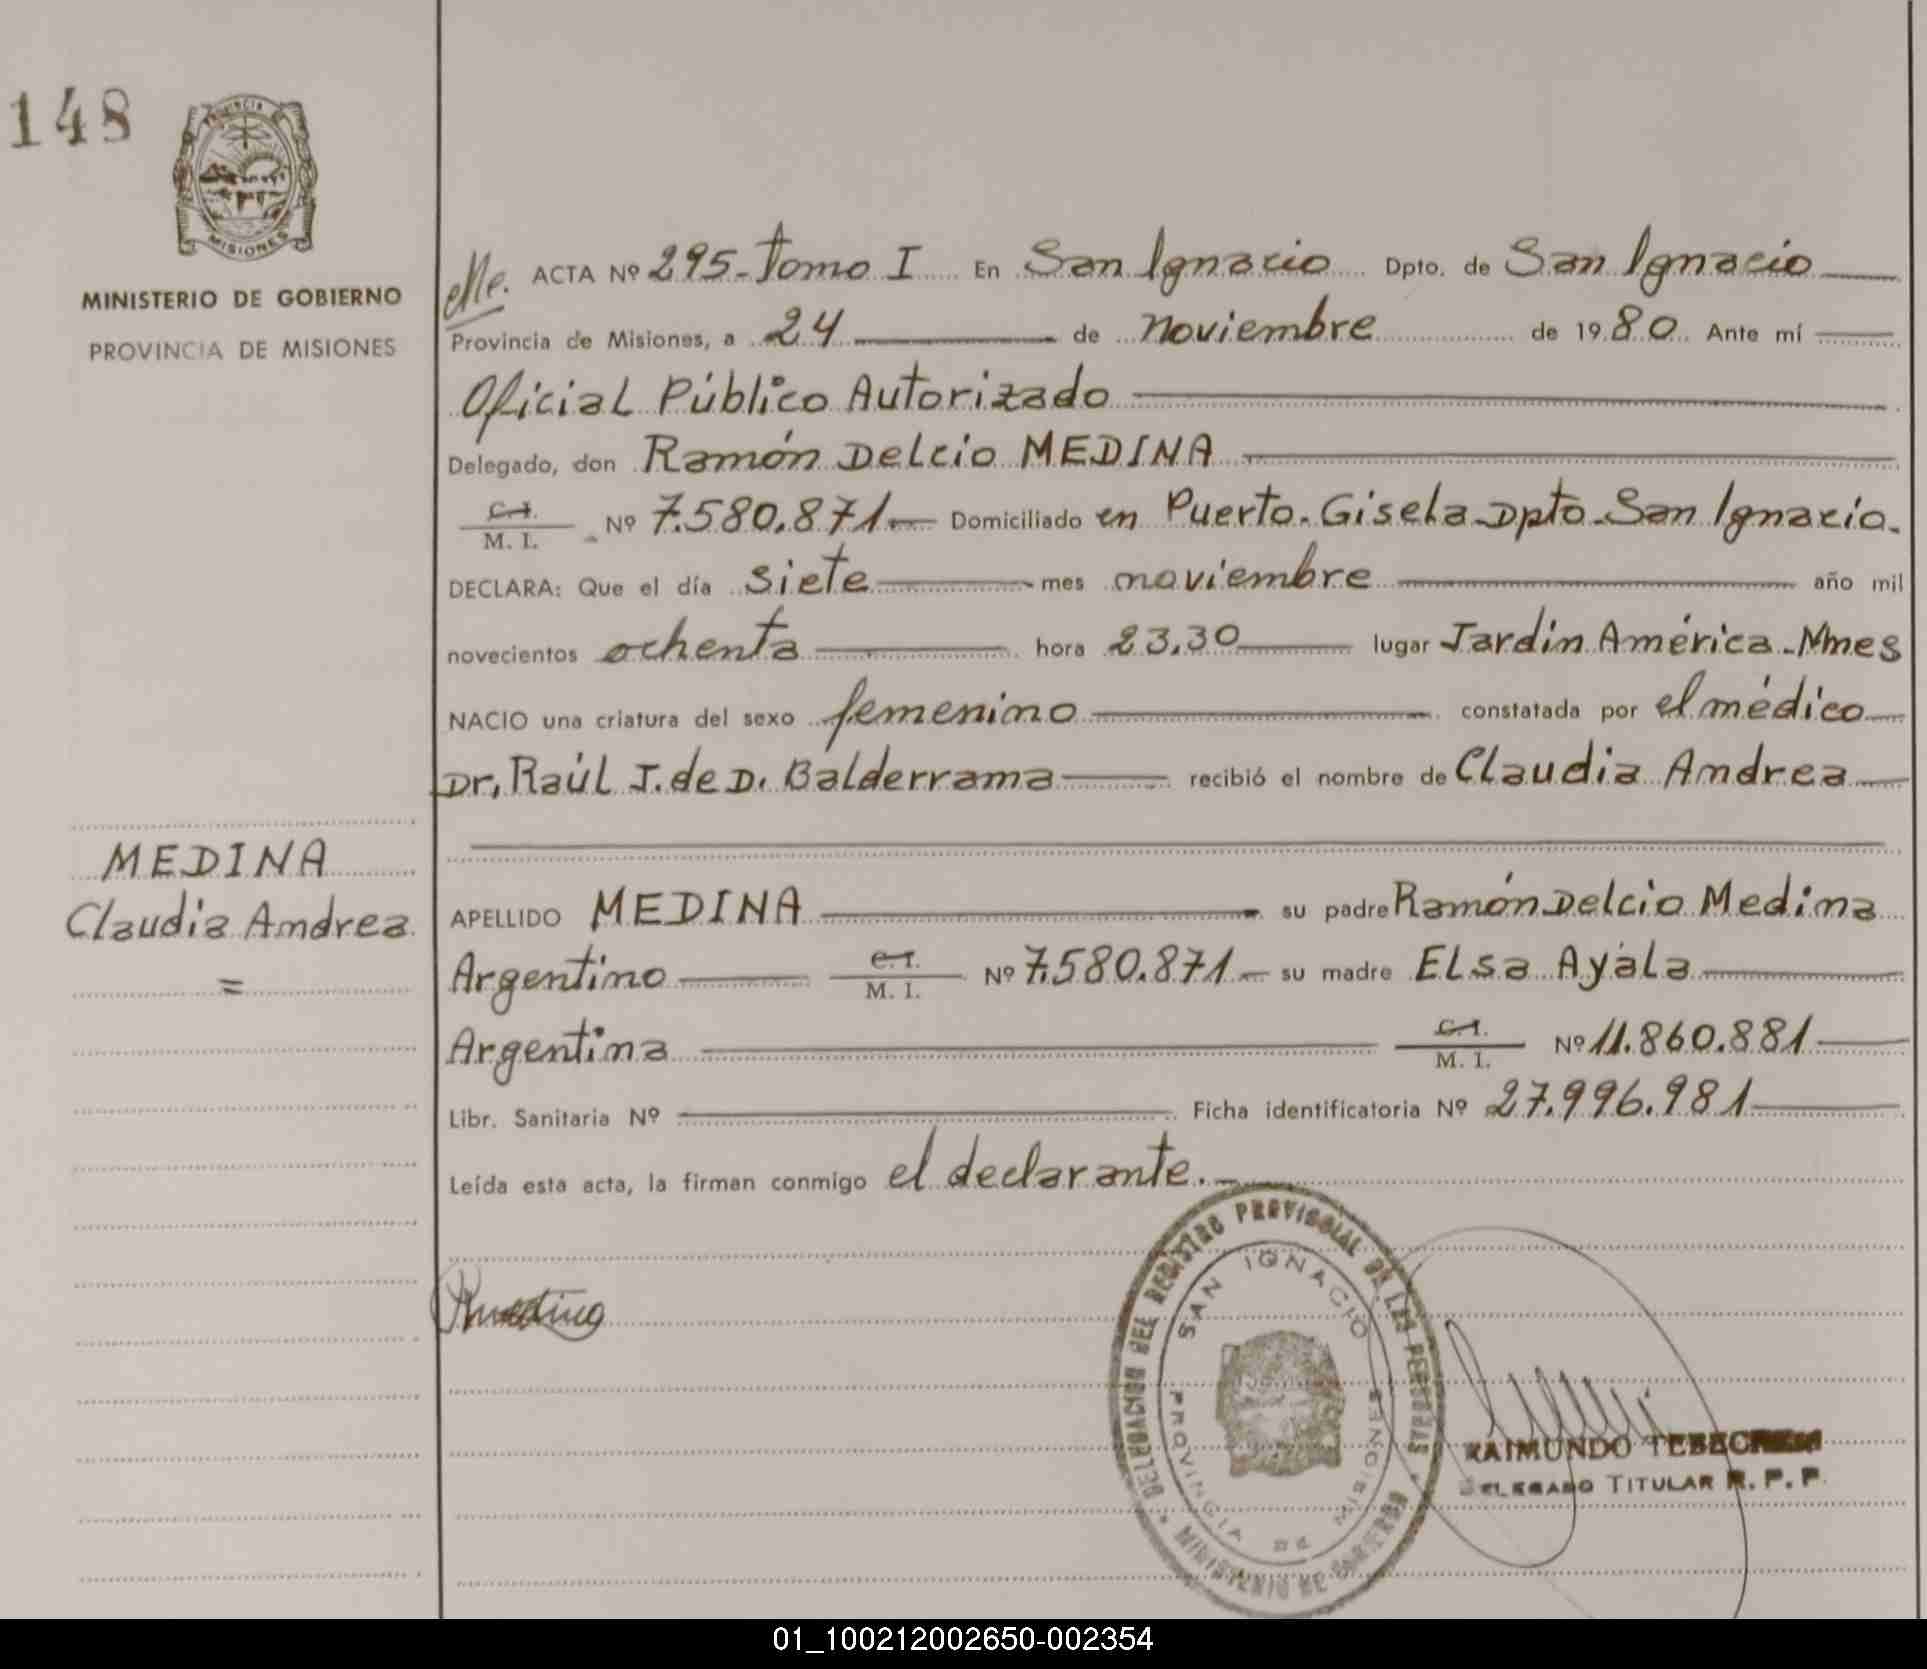 148
PROVINCIA
MISIONES
MINISTERIO DE GOBIERNO
PROVINCIA DE MISIONES
MEDINA
Claudia Andrea
=
ACTA Nº 295-Tomo I En San Ignacio Dpto. de San Ignacio
Provincia de Misiones, a 24 de Noviembre de 1980 Ante mí
Oficial Público Autorizado
Delegado, don Ramón Delcio MEDINA
C.I.
M. I. Nº 7.580.871 Domiciliado en Puerto. Gisela-Dpto-San Ignacio.
DECLARA: Que el día siete mes noviembre año mil
novecientos ochenta hora 23,30 lugar Jardín América-Mnes
NACIO una criatura del sexo femenino constatada por el médico
Dr, Raúl J. de D. Balderrama recibió el nombre de Claudia Andrea
APELLIDO MEDINA su padre Ramón Delcio Medina
Argentino C.I.
M. I. Nº 7.580.871 su madre Elsa Ayala
Argentina C.I.
M. I. Nº 11.860.881
Libr. Sanitaria Nº Ficha identificatoria Nº 27.996.981
Leída esta acta, la firman conmigo el declarante.
DELEGACION DEL REGISTRO PROVINCIAL DE LAS PERSONAS
SAN IGNACIO
PROVINCIA DE MISIONES
MINISTERIO DE GOBIERNO
RAIMUNDO
DELEGADO TITULAR R. P. P.
01_100212002650-002354